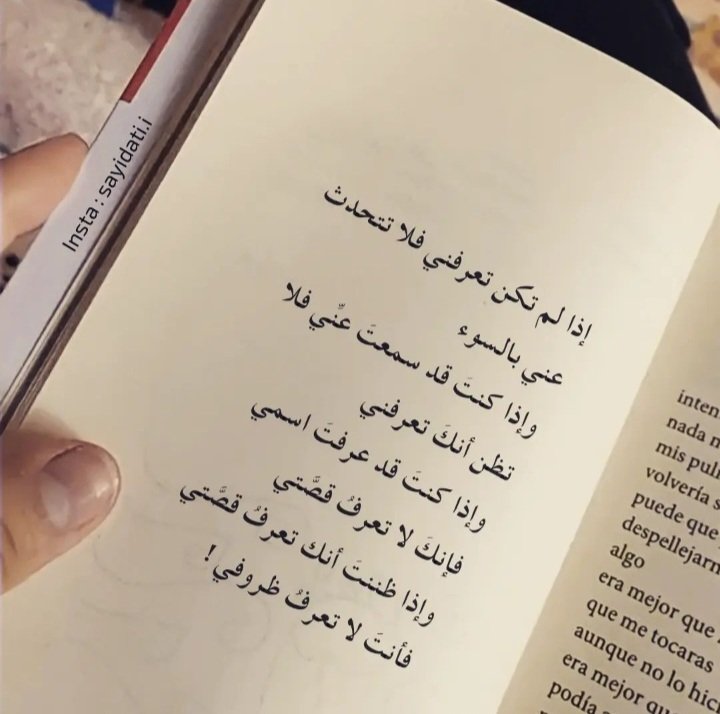 إذا لم تكن تعرفني فلا تتحدث
عني بالسوء
وإذا كنتَ قد سمعتَ عنِّي فلا
تظن أنكَ تعرفني
وإذا كنتَ قد عرفتَ اسمي
فإنكَ لا تعرفُ قصَّتي
وإذا ظننتَ أنك تعرفُ قصَّتي
فأنتَ لا تعرفُ ظروفي!
Insta : sayidati.i
inten
nada n
mis pul
volvería s
puede que
despellejarn
algo
era mejor que
que me tocaras
aunque no lo hic
era mejor qu
podía